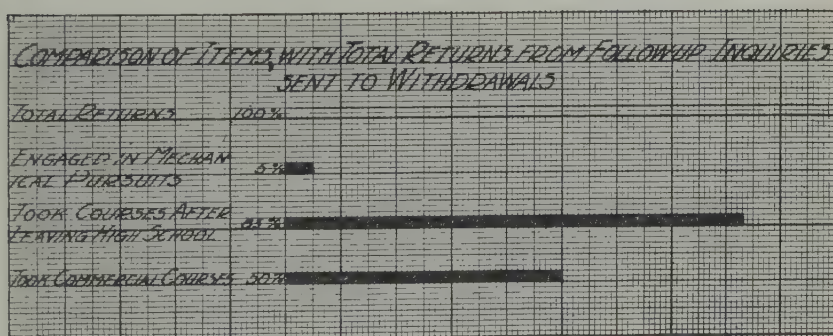 COMPARISON OF ITEMS, WITH TOTAL RETURNS FROM FOLLOWUP INQUIRIES
SENT TO WITHDRAWALS
TOTAL RETURNS 100%
ENGAGED IN MECHAN
ICAL PURSUITS 5%
TOOK COURSES AFTER
LEAVING HIGH SCHOOL 83%
TOOK COMMERCIAL COURSES 50%